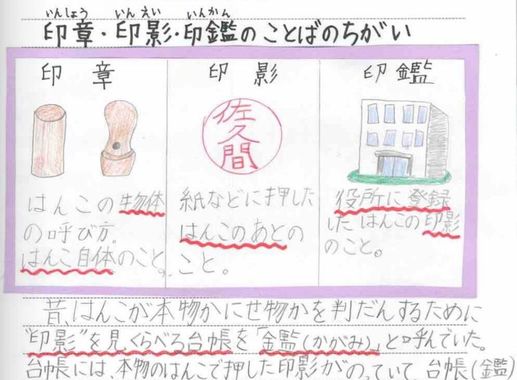 いんしょう いんえい いんかん
印章・印影・印鑑のことばのちがい
印章
はんこの物体
の呼び方。
はんこ自体のこと。
印影
佐久間
紙などに押した
はんこのあとの
こと。
印鑑
役所に登録
したはんこの印影
のこと。
昔、はんこが本物かにせ物かを判だんするために
"印影"を見くらべる台帳を「金鑑(かがみ)」と呼んでいた。
台帳には、本物のはんこで押した印影がのっていて、台帳(鑑)